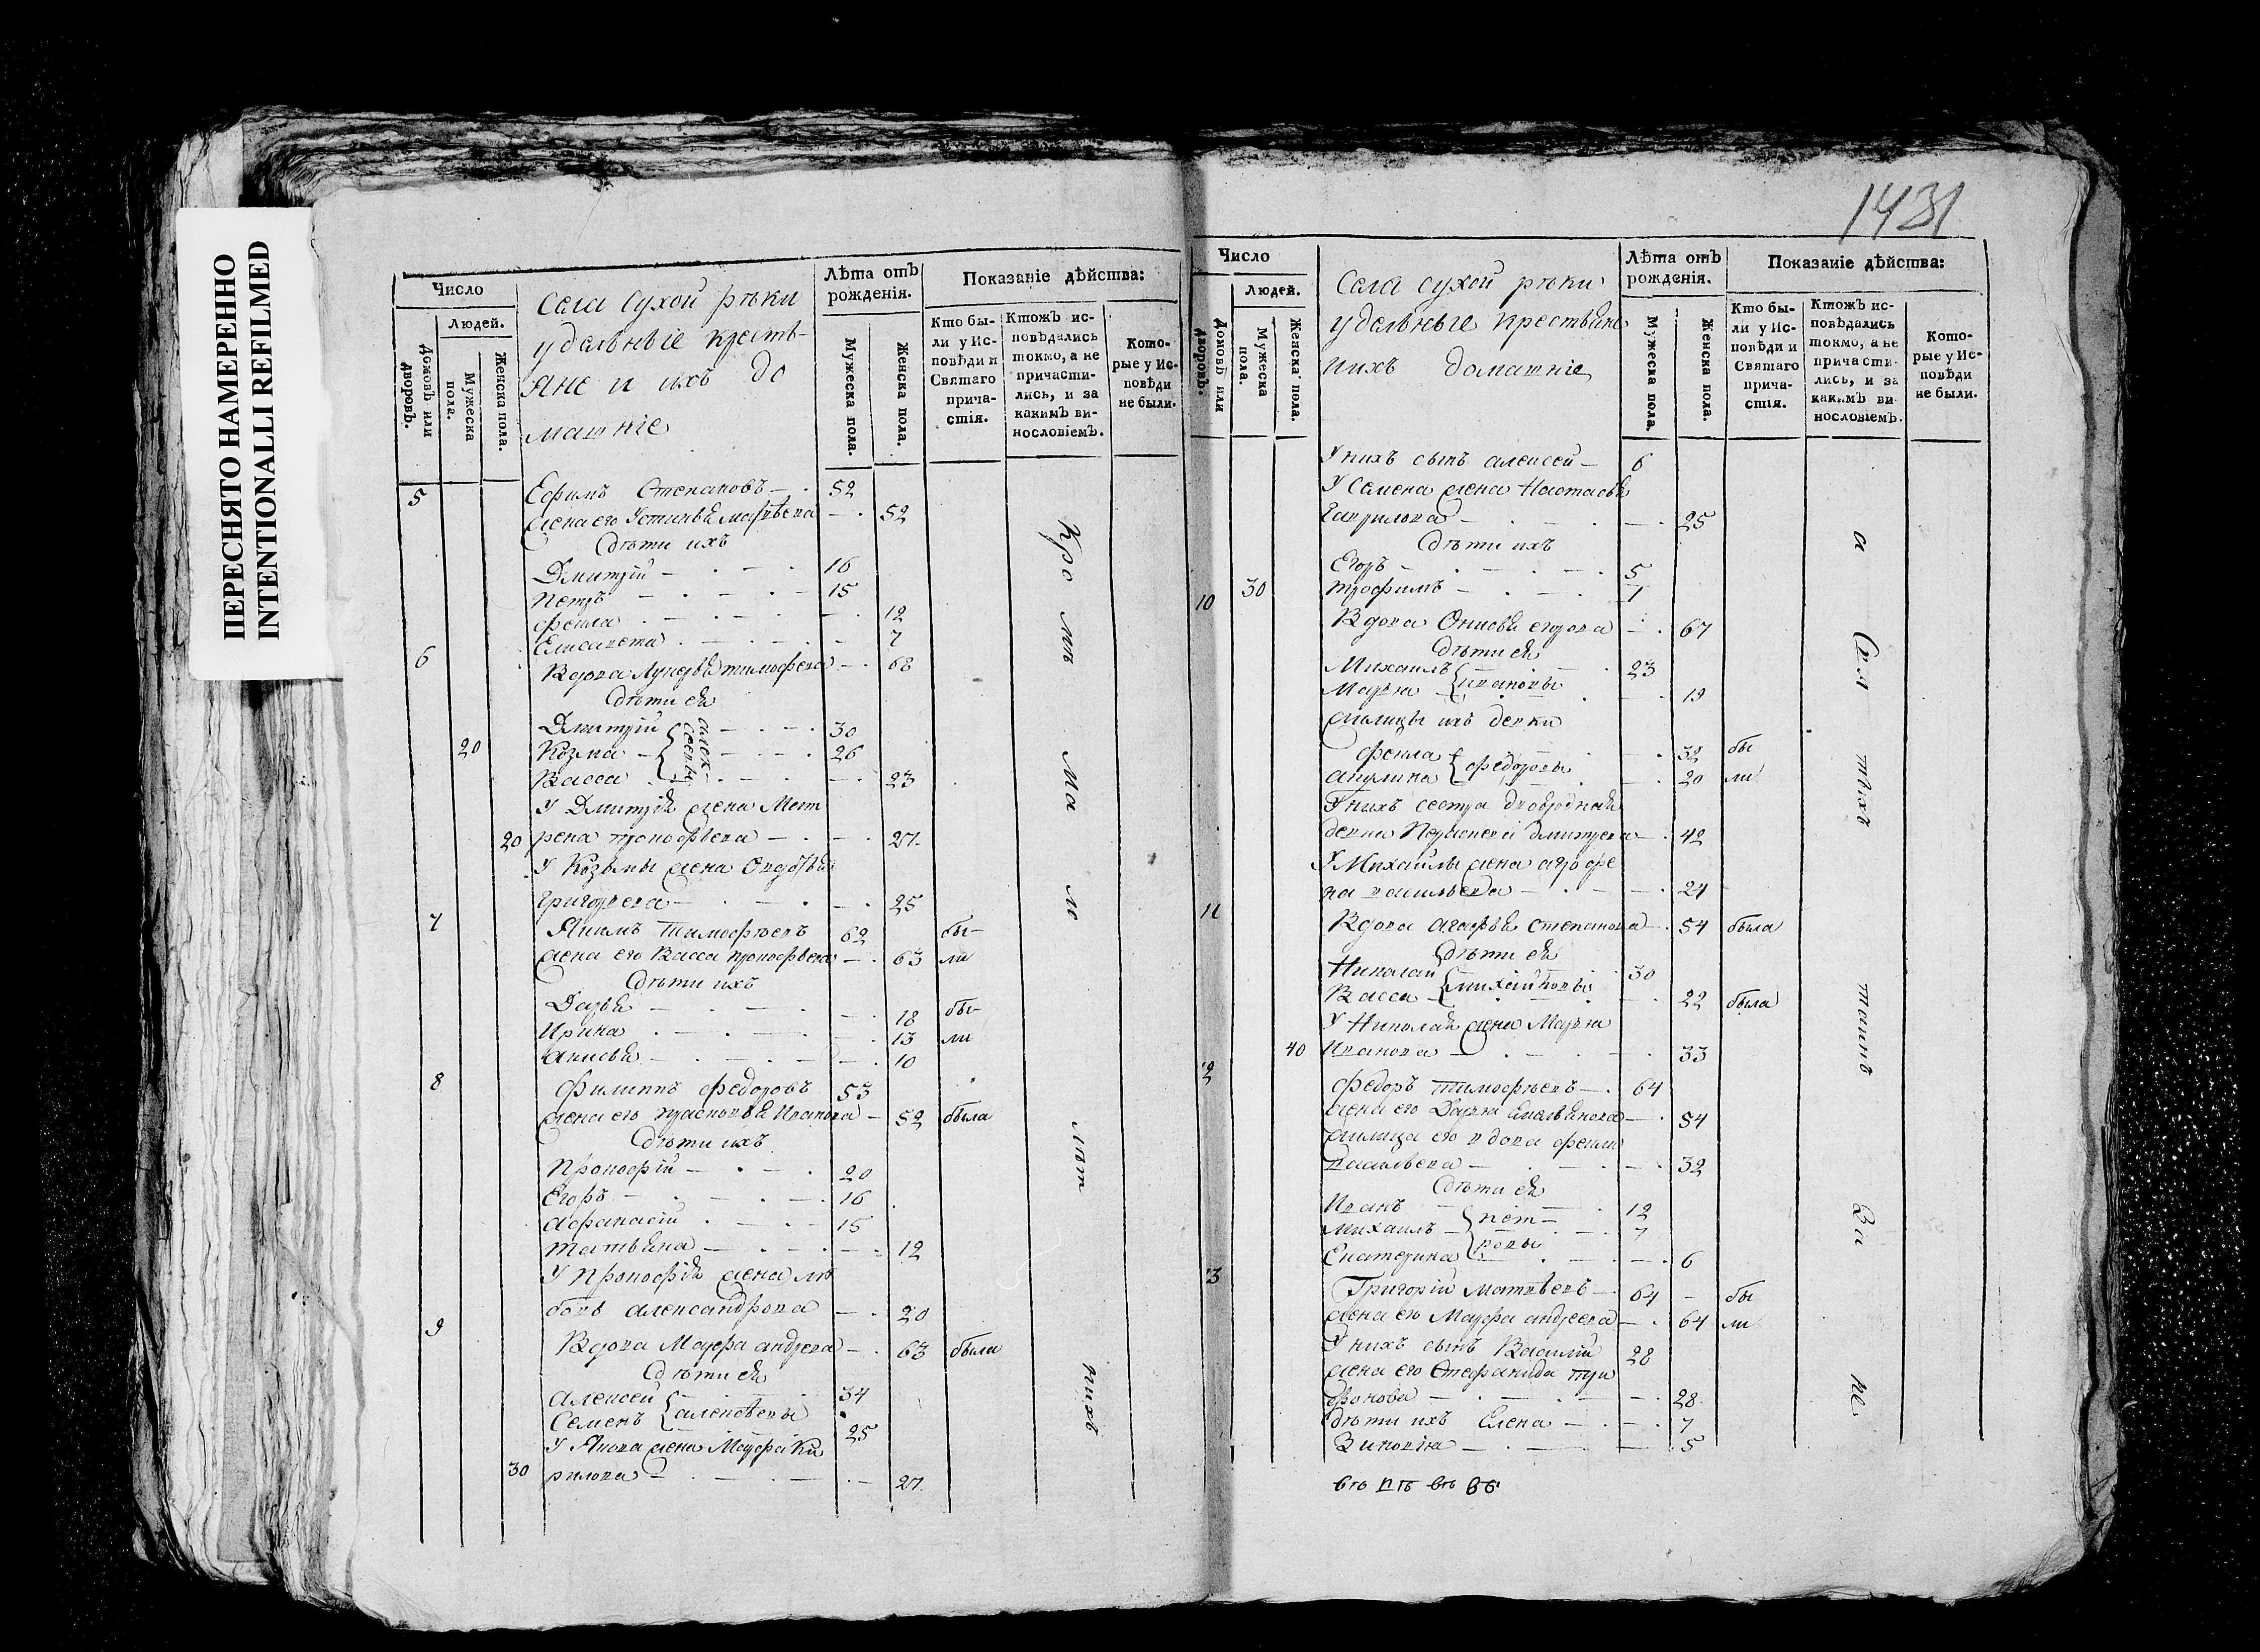 ПЕРЕСНЯТО НАМЕРЕННО
INTENTIONALLI REFILMED
1431
Число
Людей.
Домовъ или дворовъ.
Мужеска пола.
Женска пола.
Села Сухой рѣки
удельные кресть-
яне и ихъ до
машніе
Лѣта отъ рожденія.
Мужеска пола.
Женска пола.
Показаніе дѣйства:
Кто бы-
ли у Ис-
повѣди и
Святаго
прича-
стія.
Ктожъ ис-
повѣдались
токмо, а не
причасти-
лись, и за
какимъ ви-
нословіемъ.
Кото-
рые у Ис-
повѣди
не были.
5 Ефимъ Степановъ 52
жена его Устинья 52
дѣти ихъ
Дмитрій 16
Петръ 15
Фекла 12
Елисавета 7
6 Вдова Лукерья Тимофеева 68
дѣти ея
Дмитрій 30
20 Козма 26
Васса 23
алек-
сеевы
У Дмитрія жена Мат
20 рена Прокофьева 27
У Козьмы жена Овдотья
Григорьева 25
7 Якимъ Тимофѣевъ 62 бы-
жена его Васса Прокофьева 63 ли
дѣти ихъ
Дарья 18 бы-
Ирина 13 ли
Анисья 10
8 Филиппъ Федоровъ 53
жена его Прасковья Иванова 52 была
дѣти ихъ
Прокофій 20
Егоръ 16
Афанасій 15
Татьяна 12
У Прокофія жена Лю
бовь Александрова 20
9 Вдова Марфа Андреева 63 была
дѣти ея
Алексей 34
Семенъ алексѣевы 25
У жена Марфа Ки
30 рилова 27
Кро мѣ ма ло лѣт нихъ
Число
Людей.
Домовъ или дворовъ.
Мужеска пола.
Женска пола.
Села сухой рѣки
удельные крестьяне
иихъ домашніе
Лѣта отъ рожденія.
Мужеска пола.
Женска пола.
Показаніе дѣйства:
Кто бы-
ли у Ис-
повѣди и
Святаго
прича-
стія.
Ктожъ ис-
повѣдались
токмо, а не
причасти-
лись, и за
какимъ ви-
нословіемъ.
Кото-
рые у Ис-
повѣди
не были.
У нихъ сынъ Алексей 6
У Семена жена Настасья
Гаврилова 25
дѣти ихъ
Егоръ 5
30 Трофимъ 1
10 Вдова Егорова 67
дѣти ея
Михаилъ 23
Марья ивановы 19
жилицы ихъ девки
Фекла 32 бы
Акулина федоровы 20 ли
У нихъ сестра двоюродная
девка Дмитрева 42
У Михайлы жена Агрофе
на Васильева 24
11 Вдова Агафья Степанова 54 была
дѣти ея
Николай 30
Васса 22 была
У Николая жена Марья
40 Иванова 33
12 Федоръ Тимофѣевъ 64
жена его Дарья Емельянова 54
жилица его вдова Фекла
Васильева 32
дѣти ея
Иванъ 12
Михаилъ 7
Екатерина 6
пет-
ровы
13 Григорій Матвѣевъ 64 бы
жена его Марфа Андреева 64 ли
У нихъ сынъ Василий 28
жена его Стефанида Три
фонова 28
дѣти ихъ Елена 7
Зиновія 5